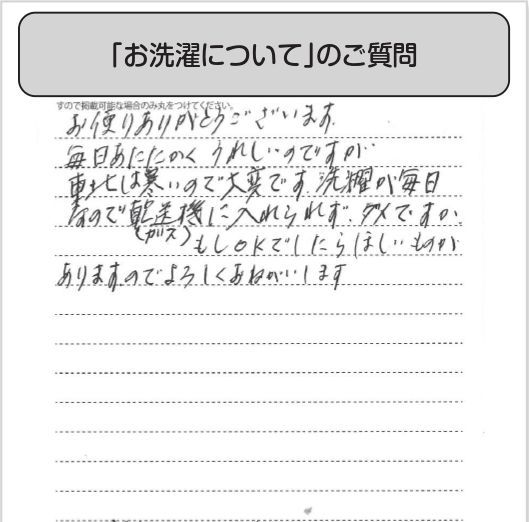 「お洗濯について」のご質問
すので掲載可能な場合のみ丸をつけてください。
お便りありがとうございます
毎日あたたかくうれしいのですが
東北は寒いので大変です 洗濯が毎日
なので乾送機に入れられずダメですか
(ガス)
もしOKでしたらほしいものが
ありますのでよろしくおねがいします